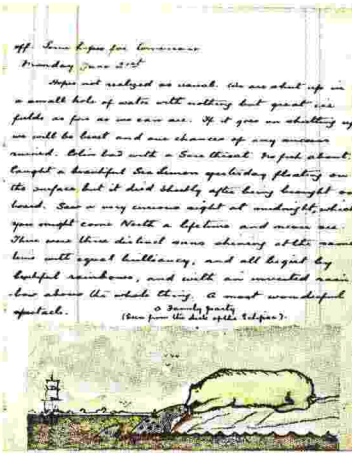 off. Some hopes for tomorrow
Monday June 21st
Hopes not realized as usual. We are shut up in
a small hole of water with nothing but great ice
fields as far as we can see. If it goes on shutting up
we will be beset and our chances of any success
ruined. Colin bad with a Sore throat. No fish about.
Caught a beautiful Sea Lemon yesterday floating on
the surface but it died shortly after being brought on
board. Saw a very curious sight at midnight, which
you might come North a lifetime and never see.
There were three distinct suns shining at the same
time with equal brilliancy, and all begirt by
beautiful rainbows, and with an inverted rain
bow above the whole thing. A most wonderful
spectacle.
A Family Party
(Seen from the deck of the Eclipse).